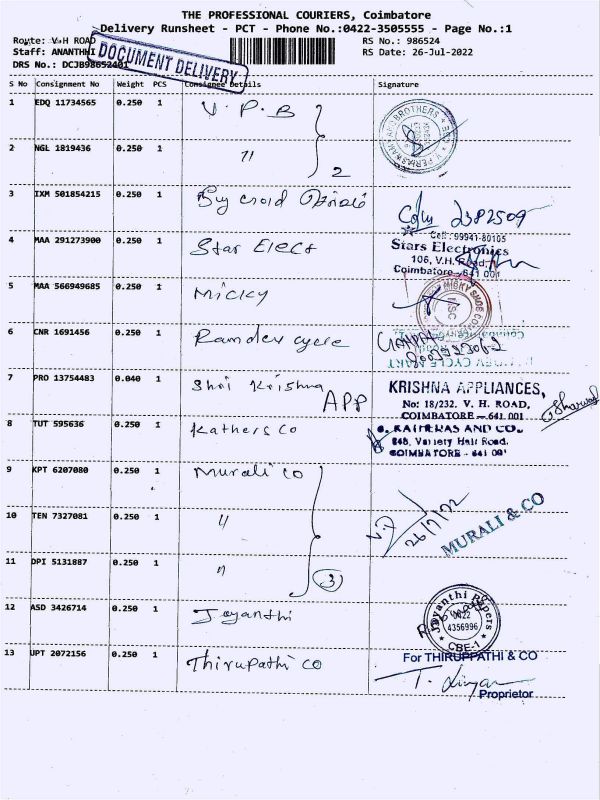 THE PROFESSIONAL COURIERS, Coimbatore
Delivery Runsheet - PCT - Phone No.:0422-3505555 - Page No.:1
Route: V.H ROAD
RS No.: 986524
Staff: ANANTHHI
RS Date: 26-Jul-2022
DRS No.: DCJB98652401
DOCUMENT DELIVERY
S No Consignment No Weight PCS Consignee Details Signature
1 EDQ 11734565 0.250 1 V. P. B
2 NGL 1819436 0.250 1 " 2
3 IXM 501854215 0.250 1
2382509
4 MAA 291273900 0.250 1 Star Elect
Cell : 99941-80105
Stars Electronics
106, V.H. Road,
Coimbatore - 641 001
5 MAA 566949685 0.250 1 Micky
6 CNR 1691456 0.250 1 Ramdev cycle
7 PRO 13754483 0.040 1 Shri Krishna APP
KRISHNA APPLIANCES,
No: 18/232, V. H. ROAD,
COIMBATORE - 641 001
8 TUT 595636 0.250 1 Kathers Co
KATHERAS AND CO.,
848, Variety Hall Road,
COIMBATORE - 641 001
9 KPT 6207080 0.250 1 Murali co
10 TEN 7327081 0.250 1 "
26/7/22
MURALI & CO
11 DPI 5131887 0.250 1 " 3
12 ASD 3426714 0.250 1 Jayanthi
Jayanthi Papers
0422
4356996
CBE-1
13 UPT 2072156 0.250 1 Thirupathi co
For THIRUPPATHI & CO
Proprietor